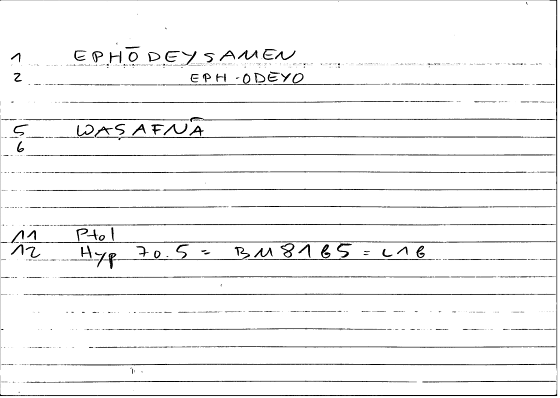 1 EPHŌDEYSAMEN
2 EPH-ODEYO
5 WAṢAFNĀ
6
11 Ptol
12 Hyp 70.5 = BM8165 = L16